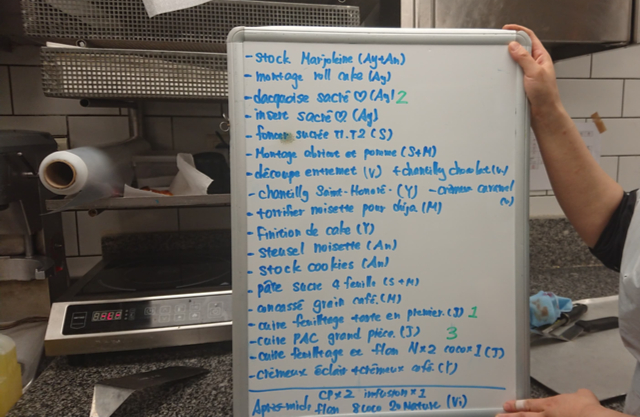 - stock Marjoleine (Ay+An)
- montage roll cake (Ay)
- dacquoise sacré ♡ (Ay) 2
- insert sacré ♡ (Ay)
- foncer sucrée M.T2 (S)
- Montage abrime et pomme (S+M)
- découpe entremet (V) + chantilly chocolat (V)
- chantilly Saint-Honoré. (Y) - crémeux caramel (V)
- torrifier noisette pour chija (M)
- Finition de cake (Y)
- steusel noisette (An)
- stock cookies (An)
- pâte sucre 4 feuille (S+M)
- concassé grain café. (M)
- cuire feuilltage tarte en premier. (J) 1
- cuire PAC grand pièce. (J) 3
- cuire feuilltage et flan N×2 coco×1 (J)
- crémeux éclair + crémeux café. (Y)
CP×2 infusion×1
Après-midi flan 8 coco 20 Nature (Vi)